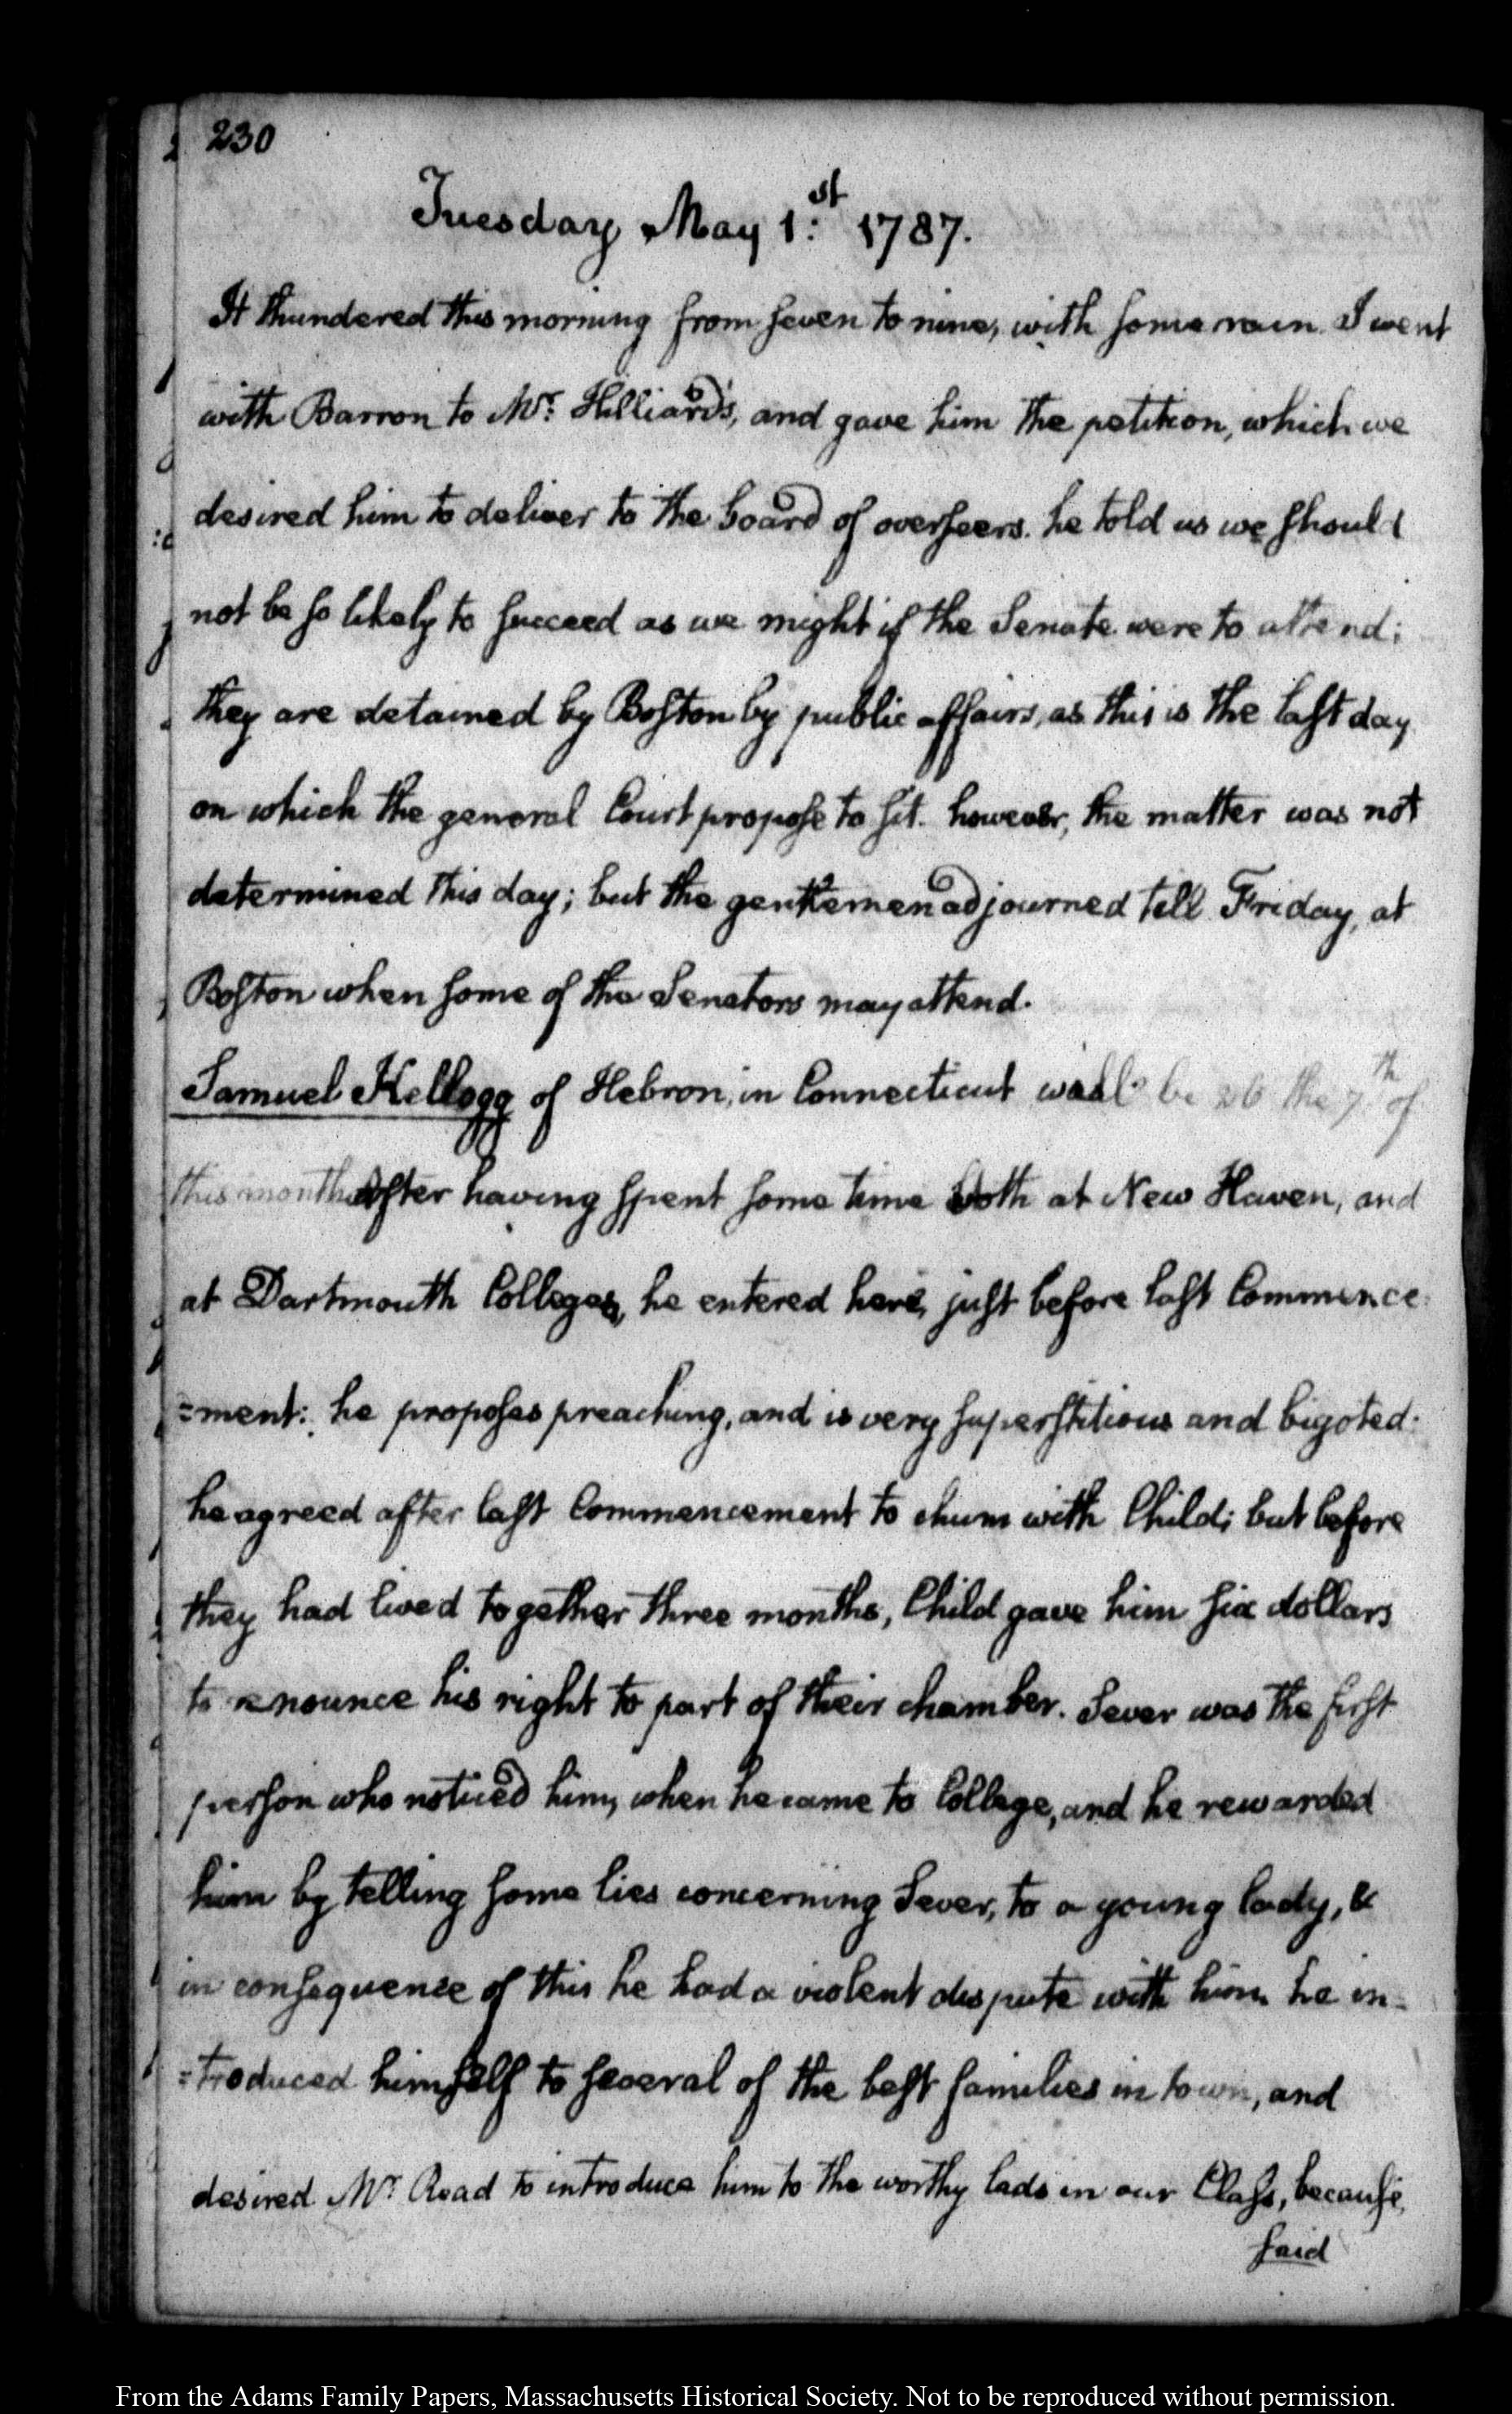 230
Tuesday May 1:st 1787.
It thundered this morning from seven to nine, with some rain. I went
with Barron to Mr: Hilliard's, and gave him the petition, which we
desired him to deliver to the board of overseers. he told us we should
not be so likely to succeed as we might if the Senate were to attend;
they are detained by Boston by public affairs, as this is the last day
on which the general Court propose to sit. however, the matter was not
determined this day; but the gentlemen adjourned till Friday, at
Boston when some of the Senators may attend.
Samuel Kellogg of Hebron, in Connecticut will be 26 the 7.th of
this month. After having spent some time both at New Haven, and
at Dartmouth Colleges, he entered here, just before last Commence
=ment: he proposes preaching, and is very superstitious and bigoted.
he agreed after last Commencement to chum with Child; but before
they had lived together three months, Child gave him six dollars
to renounce his right to part of their chamber. Sever was the first
person who noticed him, when he came to College, and he rewarded
him by telling some lies concerning Sever, to a young lady, &
in consequence of this he had a violent dispute with him he in=
=troduced himself to several of the best families in town, and
desired Mr Read to introduce him to the worthy lads in our Class, because,
said
From the Adams Family Papers, Massachusetts Historical Society. Not to be reproduced without permission.